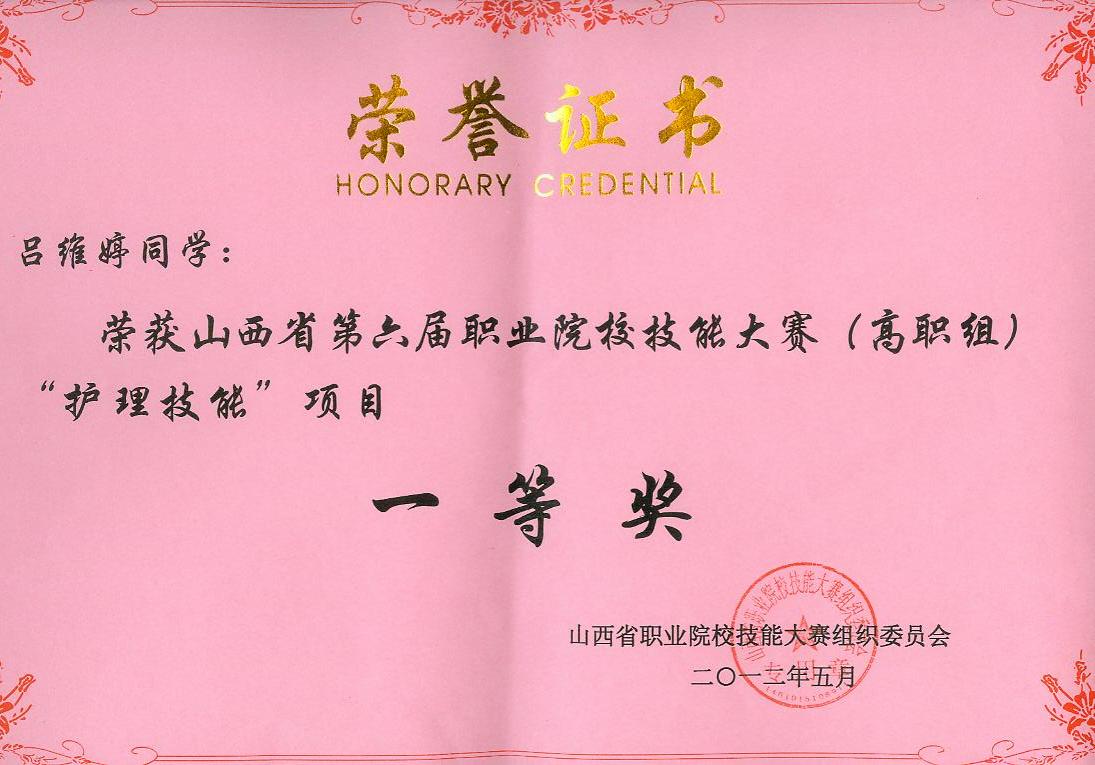 荣誉证书
HONORARY CREDENTIAL
吕维婷同学：
荣获山西省第六届职业院校技能大赛（高职组）
“护理技能”项目
一等奖
山西省职业院校技能大赛组织委员会
二〇一二年五月
专用章